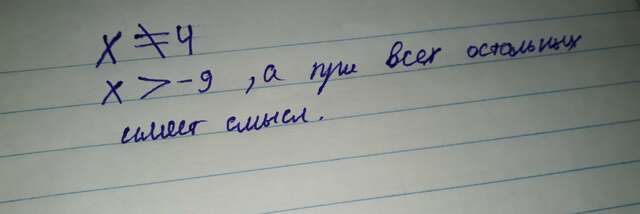 x ≠ 4
x > -9, а при всех остальных
имеет смысл.